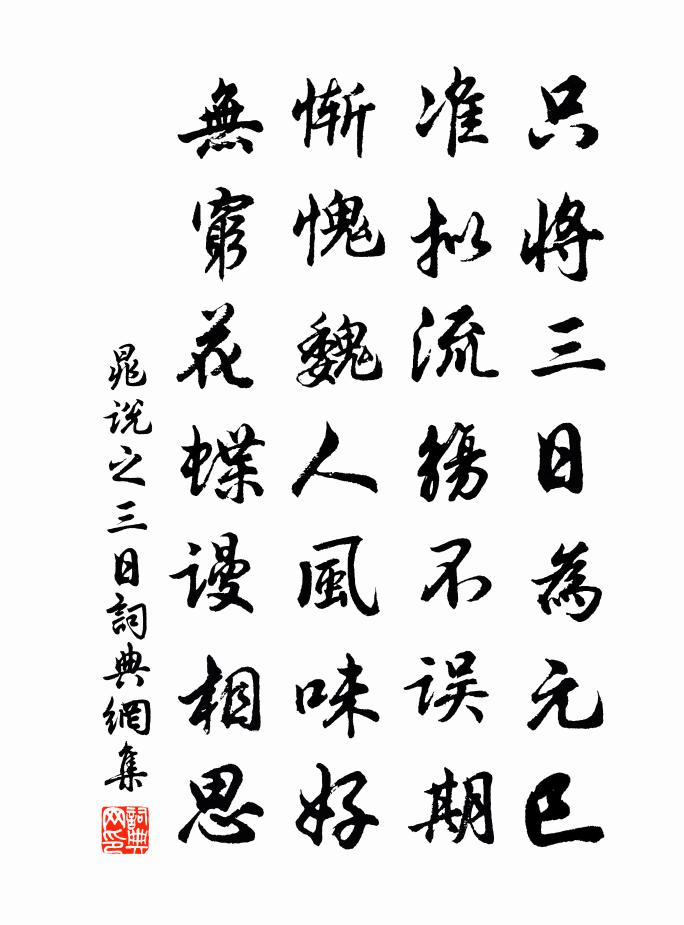 只将三日為元巳
准拟流觴不误期
慚愧魏人風味好
無窮花蝶謾相思
晁说之三日詞典網集
詞典网印